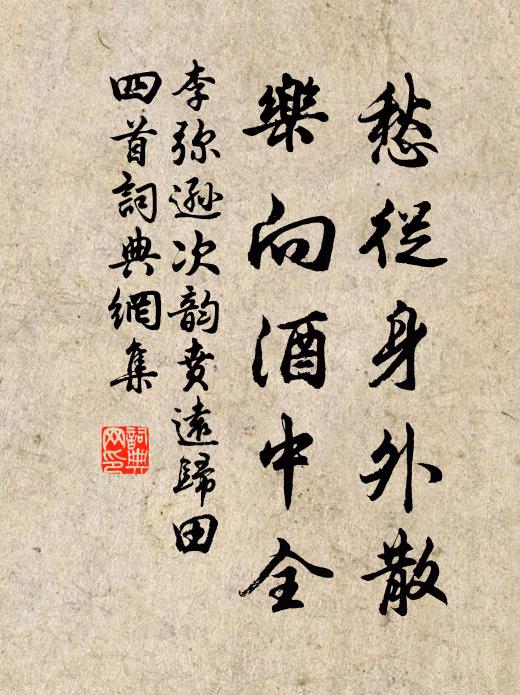 愁從身外散
樂向酒中全
李弥遜次韵賁遠歸田
四首詞典網集
詞典
网印